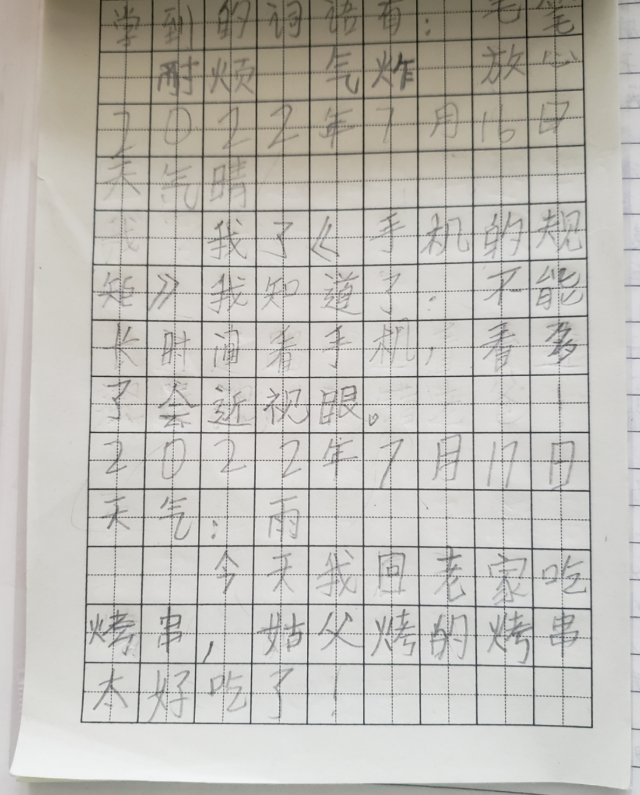 学到的词语有：毛笔
耐烦 气炸 放心
2022年7月16日
天气晴
我 我了《手机的规
矩》我知道了：不能
长时间看手机，看多
了会近视眼。
2022年7月17日
天气：雨
今天我回老家吃
烤串，姑父烤的烤串
太好吃了！